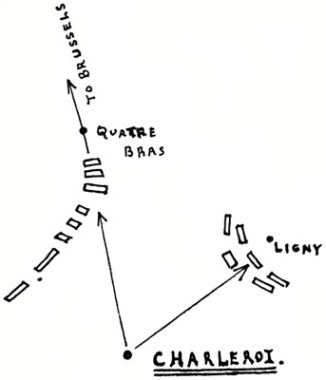 TO BRUSSELS
QUATRE
BRAS
LIGNY
CHARLEROI.